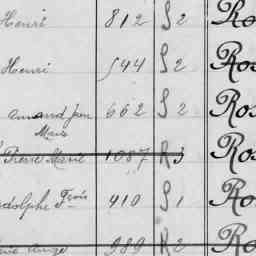 Henri 812 S 2 Ro
Henri 544 S 2 Ros
amand jean 662 S 2 Ros
Marie
Pierre Marie 1087 R 3 Ros
dolphe Frois 410 S 1 Ro
ange 989 R 2 Ro